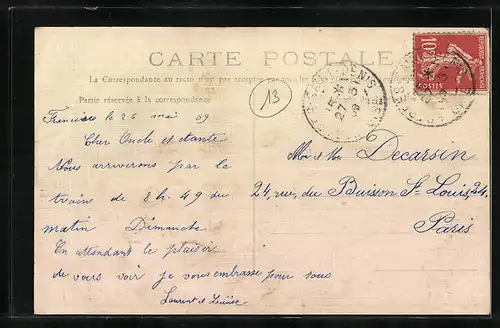 CARTE POSTALE
La Correspondance au recto n'est pas acceptée par tous les
Partie réservée à la correspondance
13
10c
POSTES
le 26 mai 09
Cher Oncle et tante
Nous arriverons par le
train de 8h.49 du
matin Dimanche
En attendant le plaisir
de vous voir je vous embrasse pour tous
Laurent et Louise
Mr et Me Decarsin
24, rue du Buisson St Louis, 24
Paris